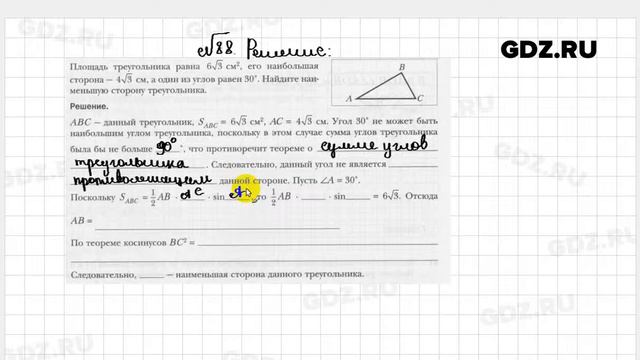 №88. Решение:
GDZ.RU
Площадь треугольника равна 6√3 см², его наибольшая
сторона — 4√3 см, а один из углов равен 30°. Найдите наи-
меньшую сторону треугольника.
B
A C
Решение.
ABC — данный треугольник, S_ABC = 6√3 см², AC = 4√3 см. Угол 30° не может быть
наибольшим углом треугольника, поскольку в этом случае сумма углов треугольника
была бы не больше 90°, что противоречит теореме о сумме углов
треугольника. Следовательно, данный угол не является
противолежащим данной стороне. Пусть ∠A = 30°.
Поскольку S_ABC = 1/2 AB · AC · sin A, то 1/2 AB · ____ · sin____ = 6√3. Отсюда
AB =
По теореме косинусов BC² =
Следовательно, ____ — наименьшая сторона данного треугольника.